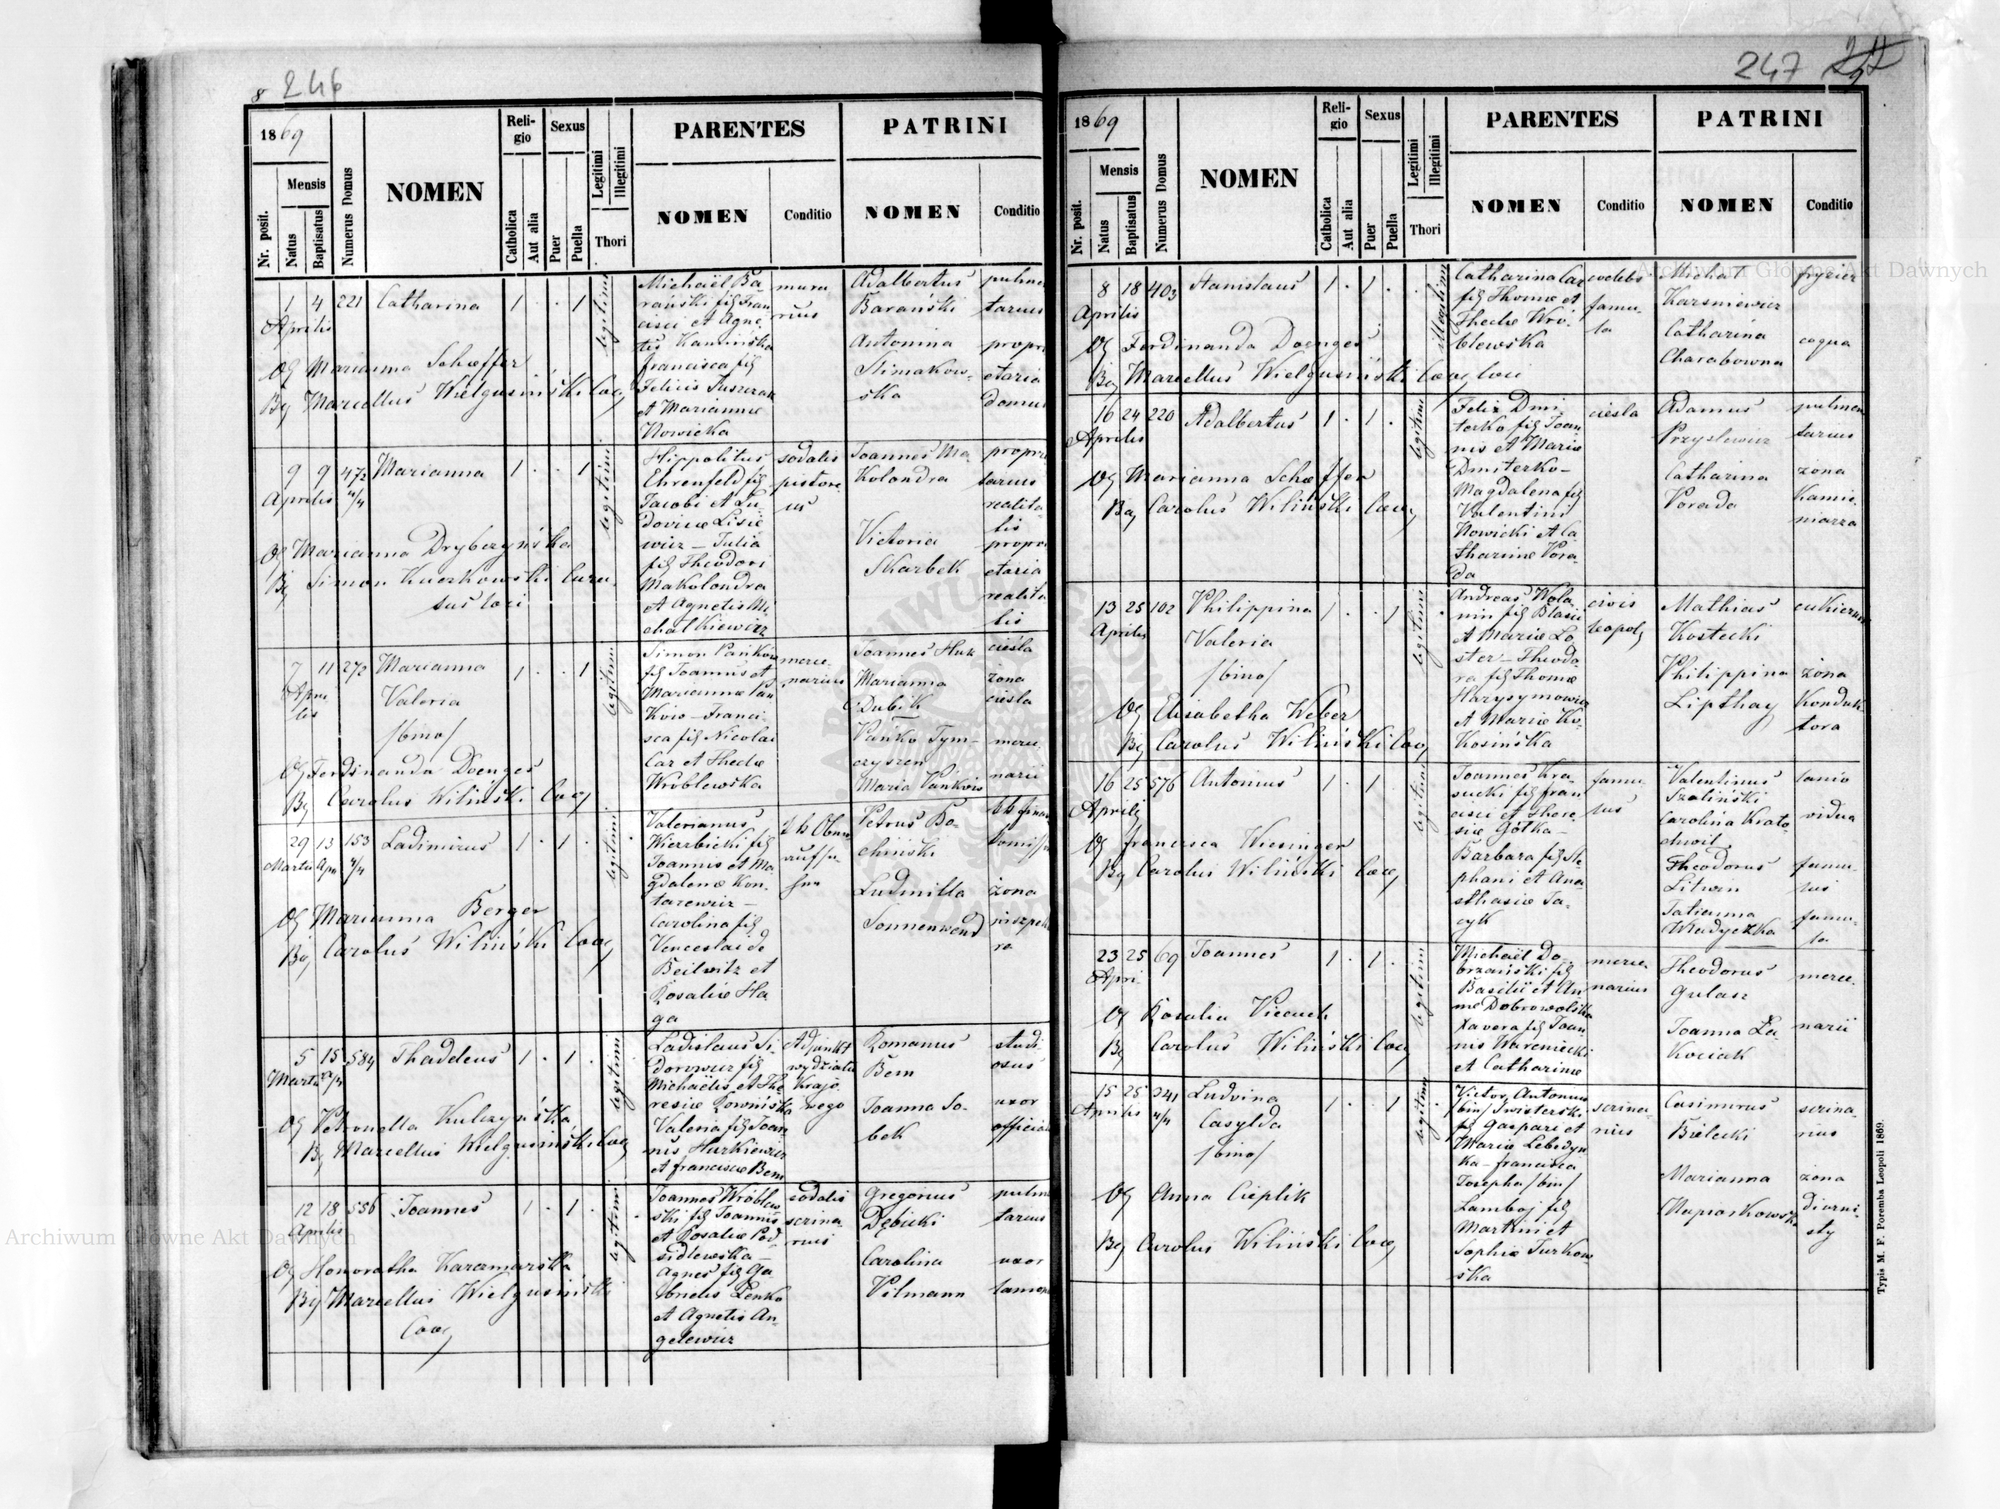 8 246
1869
Nr. posit.
Mensis
Natus
Baptisatus
Numerus Domus
NOMEN
Religio
Catholica
Aut alia
Sexus
Puer
Puella
Legitimi
Illegitimi
Thori
PARENTES
NOMEN
Conditio
PATRINI
NOMEN
Conditio
1 4 221 Catharina 1 . . 1
Aprilis
legitimi
Michaël Ba-
rański fig Fran-
cisci et Agne-
tis Kamińska
Francisca fig
Felicis Tuszczak
et Marianna
Nowicka
mura
rius
Adalbertus
Barański
Antonina
Slimakow-
ska
pulmen
tarius
propri
etaria
domus
Og Marianna Schæffer
Bg Marcellus Wielgusiński Coog
9 9 472 Marianna 1 . . 1
Aprilis 4/4
legitimi
Hippolitus
Ehrenfeld fig
Jacobi et Lu-
dovicæ Lisie
wicz – Julia
fig Theodori
Makolondra
et Agnetis Mi-
chalkiewicz
sodalis
pistore-
us
Joannes Ma-
Kolondra
Victoria
Skarbek
propri
tarius
realita-
tis
propri
etaria
realita
tis
Og Marianna Drybczyńska
Bg Simon Kuczkowski Cura-
tus loci
7 11 272 Marianna 1 . . 1
Apri
lis
Valeria
/bino/
legitimi
Simon Pańków
fig Joannis et
Marianna Pań
Ków – Franci-
sca fig Nicolai
Car et Theclæ
Wróblewska
merce-
narius
Joannes Huk
Marianna
Dubik
Pańko Tym-
czyszen
Maria Pańków
cieśla
żona
cieśla
merce-
narii
Og Ferdinanda Doenges
Bg Carolus Wiliński Coog
29 13 153 Ladimirus 1 . 1 .
Martii Apr 4/4
legitimi
Valerianus
Wierzbicki fig
Joannis et Ma-
gdalenæ Kon-
tarewicz –
Carolina fig
Venceslai de
Beilwitz et
Rosaliæ Ha-
ga
Petrus Bo-
chiński
Ludmilla
Sonnenwend
żona
Og Marianna Berger
Bg Carolus Wiliński Coog
5 15 584 Thaddeus 1 . 1 .
legitimi
Ladislaus Si-
dorowicz fig
Michaëlis et The
resiæ Rowińska
Valeria fig Joan
nis Hurkiewicz
et Franciscæ Bem
Adjunkt
wydziału
Krajo-
wego
Romanus
Bem
Joanna So-
bek
studi
osus
uxor
official
Og Petronella Kulczyńska
Bg Marcellus Wielgusiński Coog
12 18 556 Joannes 1 . 1 .
Aprilis
legitimi
Joannes Wróblew
ski fig Joannis
et Rosaliæ Pod-
sidlewska –
Agnes fig Ga-
brielis Lenko
et Agnetis An-
gelewicz
sodalis
scrina-
rius
Gregorius
Dębicki
Carolina
Pilmann
pulmen
tarius
uxor
Og Honoratha Karczmarska
Bg Marcellus Wielgusiński
Coog
247
1869
Nr. posit.
Mensis
Natus
Baptisatus
Numerus Domus
NOMEN
Religio
Catholica
Aut alia
Sexus
Puer
Puella
Legitimi
Illegitimi
Thori
PARENTES
NOMEN
Conditio
PATRINI
NOMEN
Conditio
8 18 403 Stanislaus 1 . 1 .
Aprilis
illegitimi
Catharina Car
fig Thomæ et
Theclæ Wró-
blewska
famu-
la
Michał
Karśniewicz
Catharina
Charabowna
coqua
Og Ferdinanda Doenges
Bg Marcellus Wielgusiński Coog loci
16 24 220 Adalbertus 1 . 1 .
Aprilis
legitimi
Felix Dmi-
terko fig Joan
nis et Maria
Dmiterko –
Magdalena fig
Valentini
Nowicki et Ca-
tharinæ Pora-
da
cieśla
Adamus
Przyslewicz
Catharina
Porada
pulmen
tarius
żona
Kamie-
niarza
Og Marianna Schæffer
Bg Carolus Wiliński Coog
13 25 102 Philippina 1 . . 1
Aprilis
Valeria
/bino/
legitimi
Andreas Wola-
nin fig Blasii
et Mariæ Lo-
ster – Theodo-
ra fig Thomæ
Harysymowicz
et Mariæ Ko-
Kosińska
civis
leopol
Mathias
Kostecki
Philippina
Lipthay
cukiernik
żona
Konduk-
tora
Og Elisabetha Weber
Bg Carolus Wiliński Coog
16 25 576 Antonius 1 . 1 .
Aprilis
legitimi
Joannes Kra-
sucki fig Fran
cisci et There-
siæ Gótka –
Barbara fig Ste
phani et Ana-
sthasiæ Ja-
cyk
famu-
lus
Valentinus
Szaliński
Carolina Krato-
chwil
Theodorus
Litwin
Tatianna
Wladyczka
lanio
vidua
famu-
lus
famu-
la
Og Francisca Wiesinger
Bg Carolus Wiliński Coog
23 25 69 Joannes 1 . 1 .
Apri
legitimi
Michaël Do-
brzański fig
Basilii et An-
næ Dobrowolska
Xavera fig Joan
nis Wareniecki
et Catharinæ
merce-
narius
Theodorus
Gulasz
Joanna La-
Kociak
merce-
narii
Og Rosalia Vicench
Bg Carolus Wiliński Coog
15 25 341 Ludvina 1 . . 1
Aprilis 4/4
Casylda
/bino/
legitimi
Victor Antonius
/bin/ Swisterski
fig Gaspari et
Mariæ Lebedyn
ka – Francisca
Josepha /bin/
Lamboj fig
Martini et
Sophiæ Turkow-
ska
scrina-
rius
Casimirus
Bielecki
Marianna
Naparkowska
scrina-
rius
żona
diurni-
sty
Og Anna Cieplik
Bg Carolus Wiliński Coog
Typis M. F. Poremba Leopoli 1869.
Archiwum Główne Akt Dawnych
Archiwum Główne Akt Dawnych